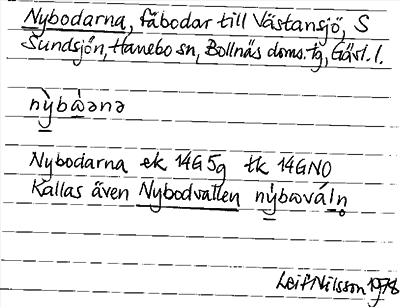 Nybodarna, fäbodar till Västansjö, S
Sundsjön, Hanebo sn, Bollnäs doms. tg, Gävl. l.
nỳbὼəna
Nybodarna ek 14G 5g tk 14GNO
Kallas även Nybodvallen nýbωváln̥
Leif Nilsson 1978